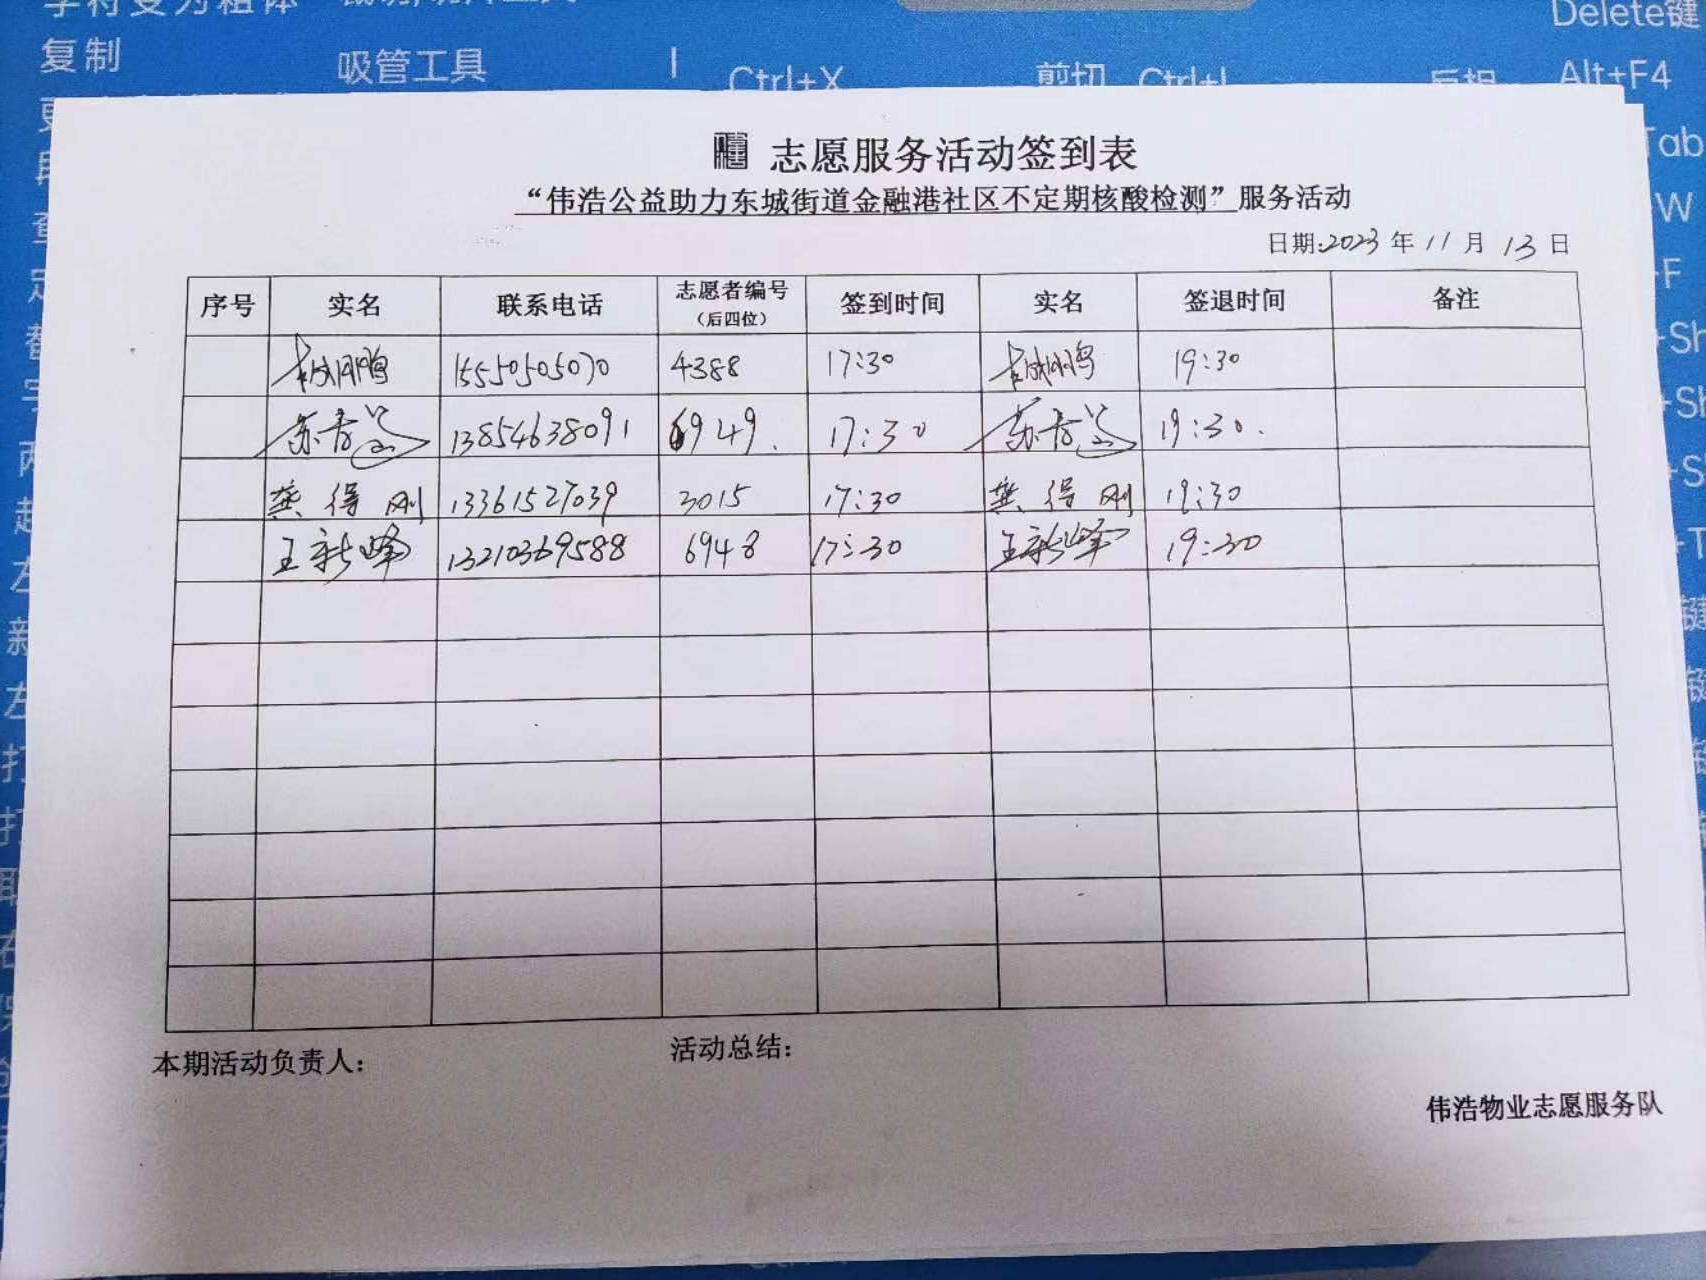 复制
吸管工具
Ctrl+X
剪切
Delete键
Alt+F4
Tab
志愿服务活动签到表
“伟浩公益助力东城街道金融港社区不定期核酸检测”服务活动
日期:2023年11月13日
序号 实名 联系电话 志愿者编号（后四位） 签到时间 实名 签退时间 备注
15550505070 4388 17:30 19:30
13854638091 6949. 17:30 19:30.
龚得刚 13361527039 3015 17:30 龚得刚 19:30
王新峰 13210369588 6948 17:30 王新峰 19:30
本期活动负责人：
活动总结：
伟浩物业志愿服务队